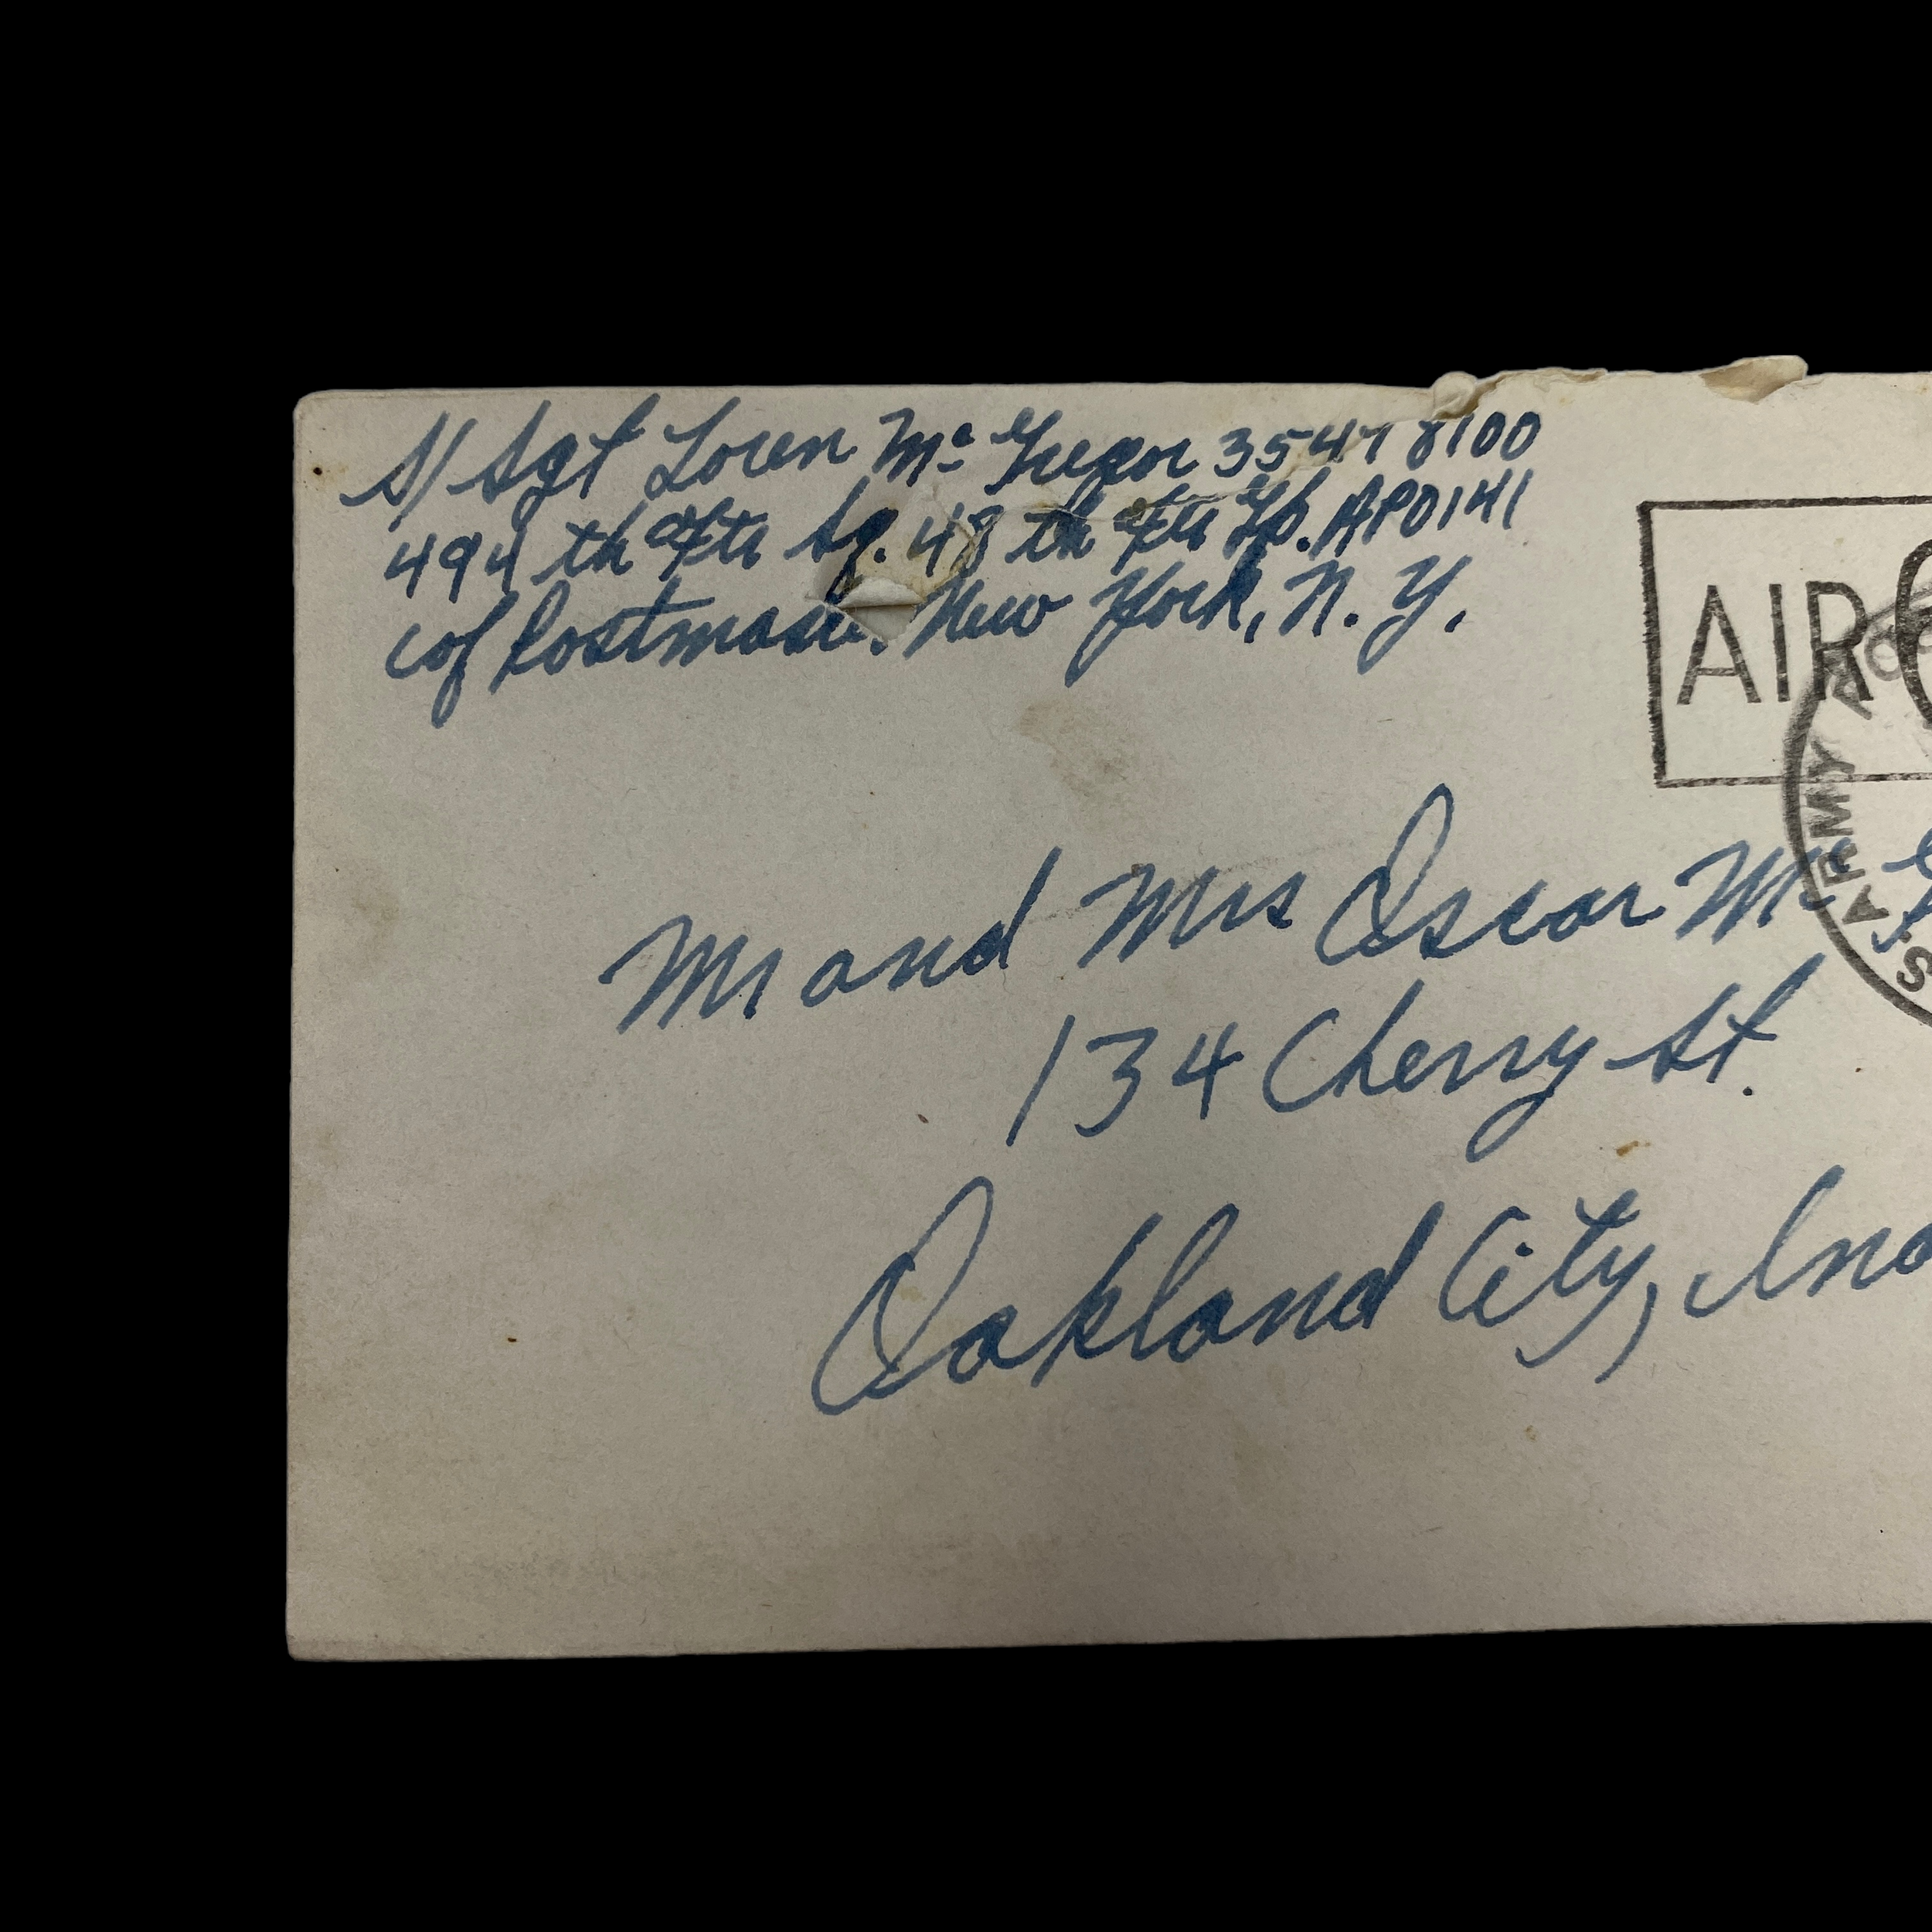 S/Sgt Loren Mc Gregor 35478100
494 th Ftr Sq. 48 th Ftr Gp. APO 141
c/o Postmaster New York, N. Y.
AIR
ARMY
Mr and Mrs Oscar Mc G
134 Cherry St.
Oakland City, Ind